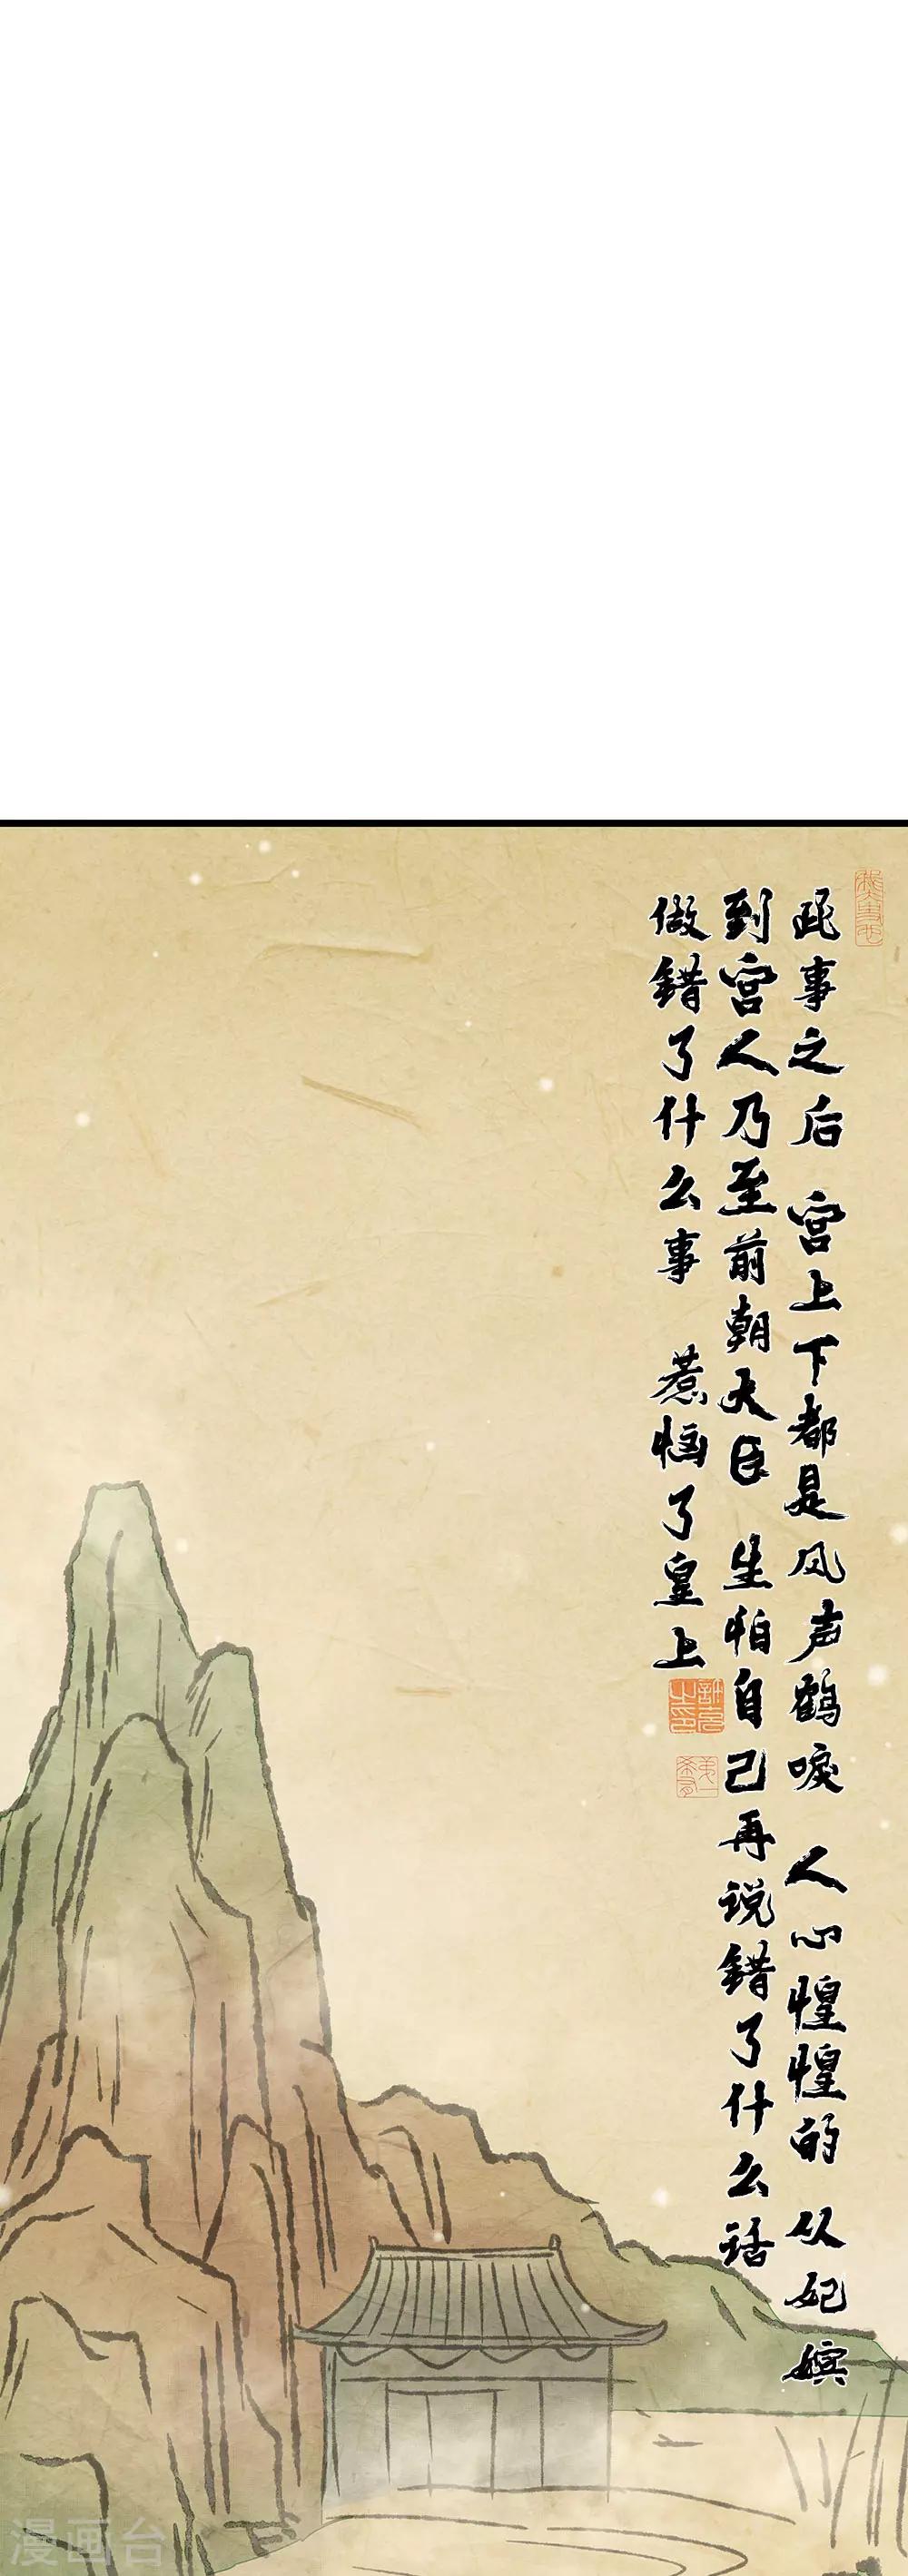 此事之后 宫上下都是风声鹤唳 人心惶惶的 从妃嫔
到宫人乃至前朝大臣 生怕自己再说错了什么话
做错了什么事 惹恼了皇上
漫画台